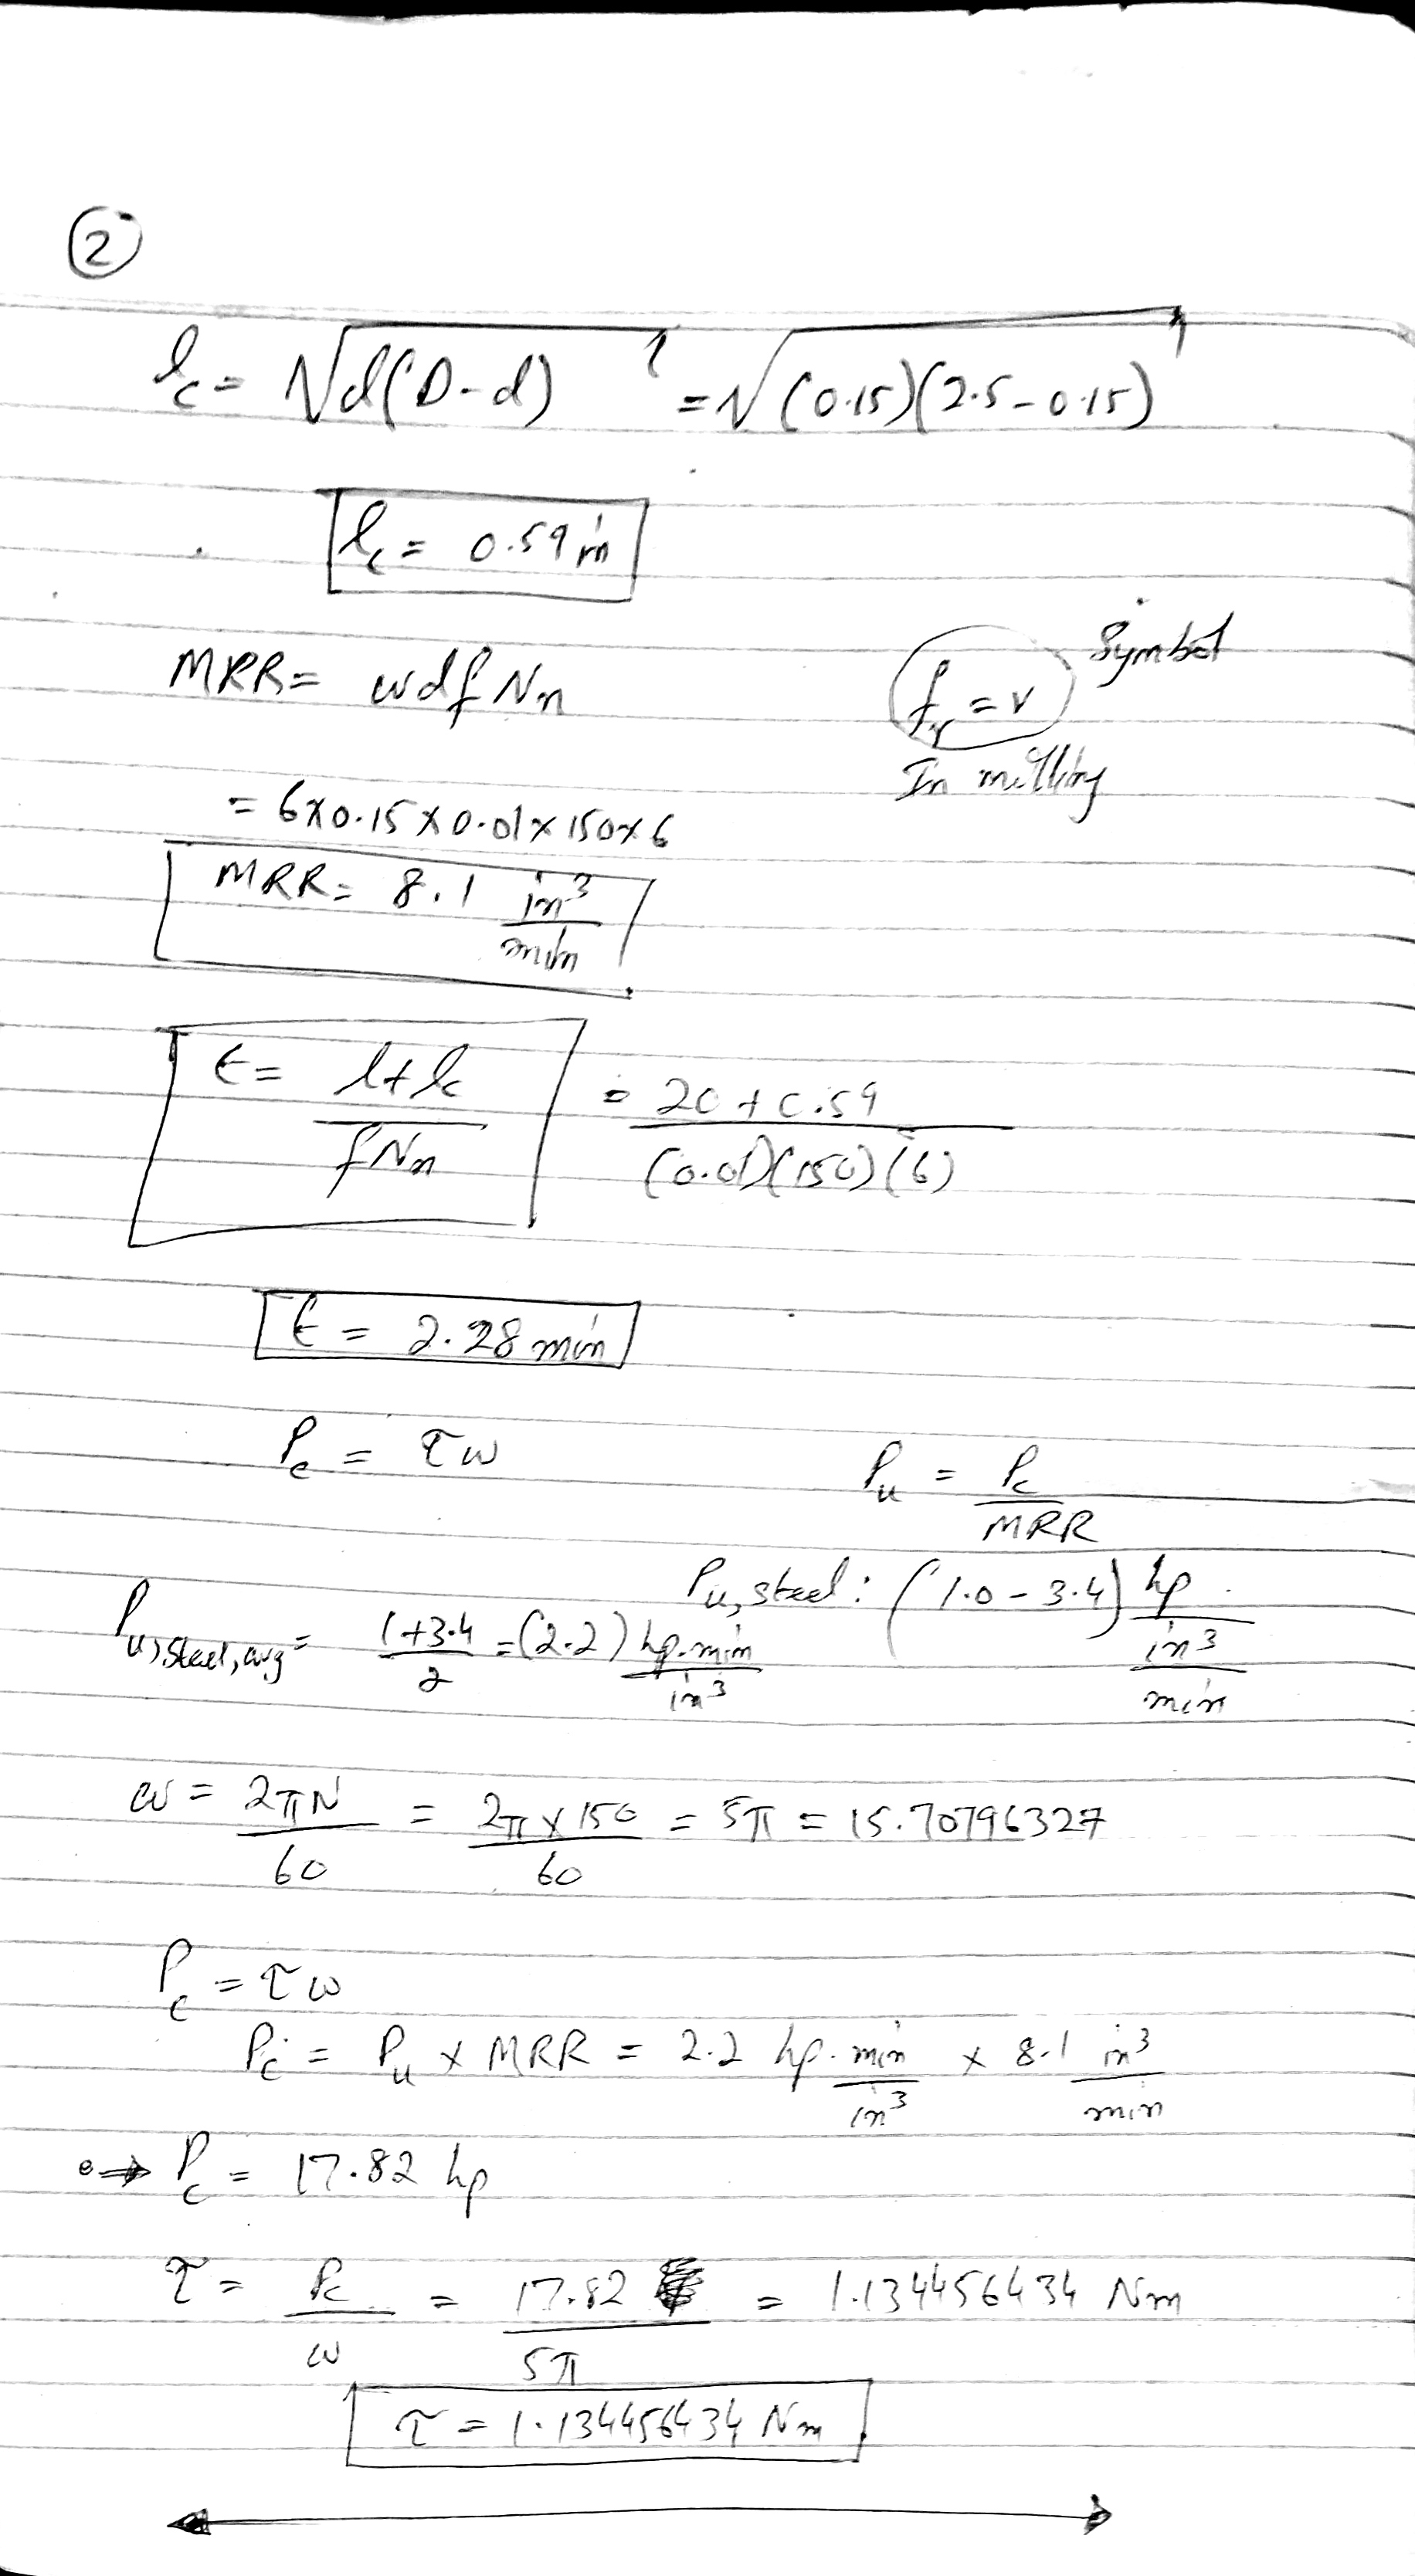 ②
l_c = √(d(D-d)) = √((0.15)(2.5-0.15))
l_c = 0.59 in
MRR = wdfNn
f_r = v Symbol
In milling
= 6×0.15×0.01×150×6
MRR = 8.1 in³/min
t = (l+l_c)/(fNn) = (20+0.59)/((0.01)(150)(6))
t = 2.28 min
P_c = τω
P_u = P_c/MRR
P_u,steel : (1.0-3.4) hp/(in³/min)
P_u,steel,avg = (1+3.4)/2 = (2.2) hp.min/in³
ω = 2πN/60 = 2π×150/60 = 5π = 15.70796327
P_c = τω
P_c = P_u × MRR = 2.2 hp.min/in³ × 8.1 in³/min
⇒ P_c = 17.82 hp
τ = P_c/ω = 17.82/5π = 1.134456434 Nm
τ = 1.134456434 Nm